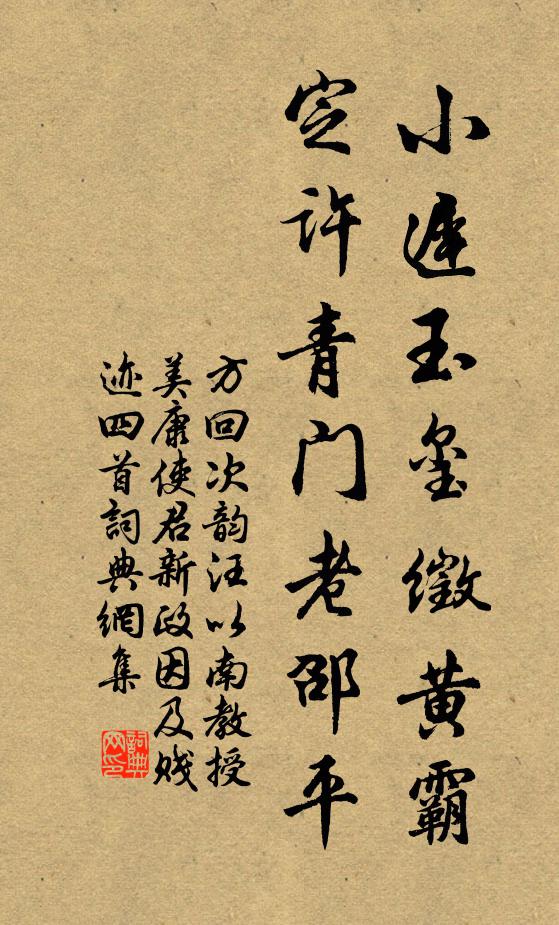 小遲玉玺徵黄霸
定许青门老邵平
方回次韵汪以南教授
美康使君新政因及贱
迹四首詞典網集
詞典网印